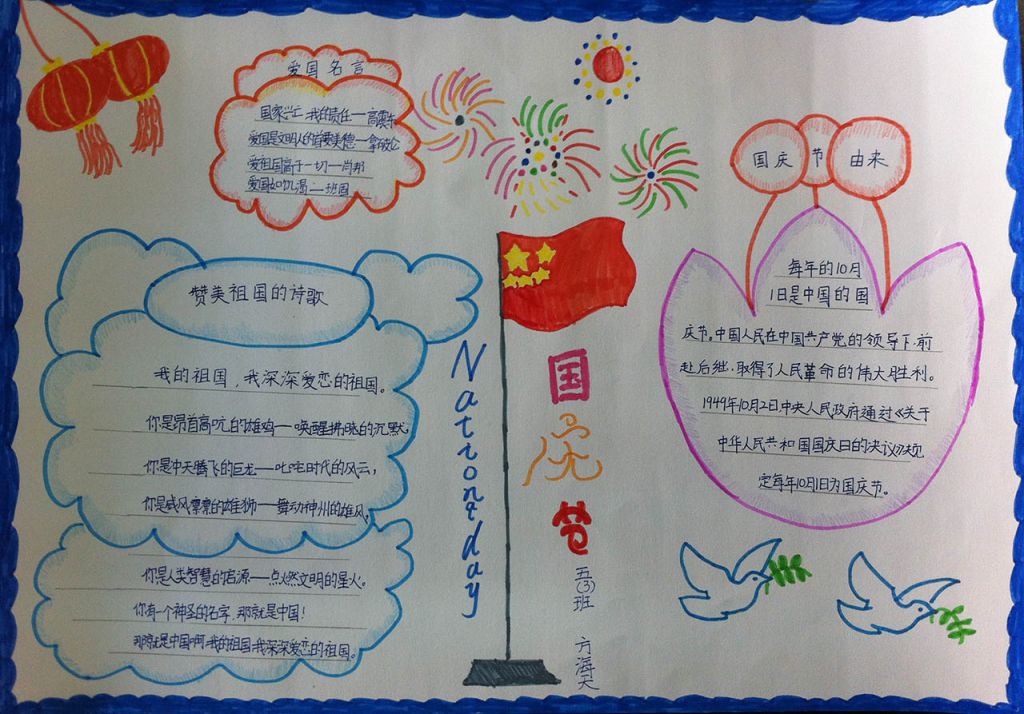 爱国名言
国家兴亡.我的责任—高震东
爱国是文明人的首要美德—拿破仑
爱祖国高于一切—肖邦
爱国如饥渴—班固
国庆节由来
每年的10月
1日是中国的国
庆节。中国人民在中国共产党的领导下.前
赴后继.取得了人民革命的伟大胜利。
1949年10月2日中央人民政府通过《关于
中华人民共和国国庆日的决议》规
定每年10月1日为国庆节。
赞美祖国的诗歌
我的祖国,我深深爱恋的祖国。
你是昂首高吭的雄鸡—唤醒拂晓的沉默,
你是中天腾飞的巨龙—叱咤时代的风云,
你是威风凛凛的雄狮—舞动神州的雄风,
你是人类智慧的启源—点燃文明的星火。
你有一个神圣的名字,那就是中国!
那就是中国啊.我的祖国.我深深爱恋的祖国。
National day
国庆节
五(3)班
方海